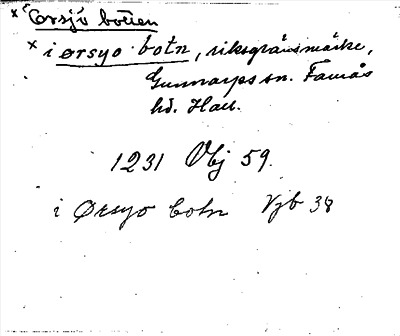 × Örsjö botten
× i ørsyo botn, riksgränsmärke,
Gunnarps sn. Fauås
hd. Hall.
1231 Vbj 59.
i Ørsyo botn Vjb 38